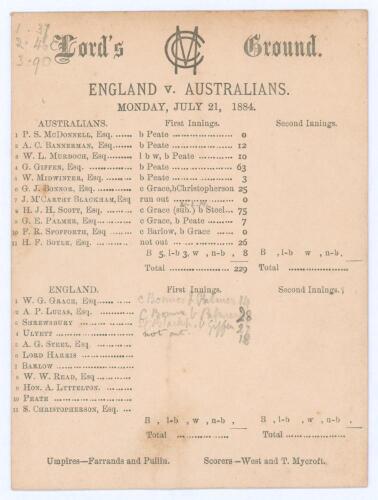 1. 37
2. 46
3. 90
Lord's MCC Ground.
ENGLAND v. AUSTRALIANS.
MONDAY, JULY 21, 1884.
AUSTRALIANS. First Innings. Second Innings.
1 P. S. McDONNELL, Esq. ...... b Peate .................. 0
2 A. C. BANNERMAN, Esq. ...... b Peate .................. 12
3 W. L. MURDOCH, Esq. ...... l b w, b Peate ......... 10
4 G. GIFFEN, Esq. ...... b Peate .................. 63
5 W. MIDWINTER, Esq. ...... b Peate .................. 3
6 G. J. BONNOR, Esq. ...... c Grace, b Christopherson 25
7 J. McCARTHY BLACKHAM, Esq run out .................. 0
8 H. J. H. SCOTT, Esq. ...... c Grace (sub.) b Steel... 75
9 G. E. PALMER, Esq. ...... c Grace, b Peate ...... 7
10 F. R. SPOFFORTH, Esq ...... c Barlow, b Grace 0
11 H. F. BOYLE, Esq. ...... not out .................. 26
B 5, l-b 3, w , n-b , 8 B , l-b w , n-b ,
Total .................. 229 Total ..................
ENGLAND. First Innings. Second Innings.
1 W. G. GRACE, Esq. ...... c Bonnor b Palmer 14
2 A. P. LUCAS, Esq. ...... c Bonnor b Palmer 28
3 SHREWSBURY ...... st Blackh. b Giffen 27
4 ULYETT ...... not out 18
5 A. G. STEEL, Esq. ......
6 LORD HARRIS ......
7 BARLOW ......
8 W. W. READ, Esq. ......
9 HON. A. LYTTELTON. ......
10 PEATE ......
11 S. CHRISTOPHERSON, Esq. ...
B , l-b , w , n-b , B , l-b , w , n-b ,
Total .................. Total ..................
Umpires—Farrands and Pullin. Scorers—West and T. Mycroft.